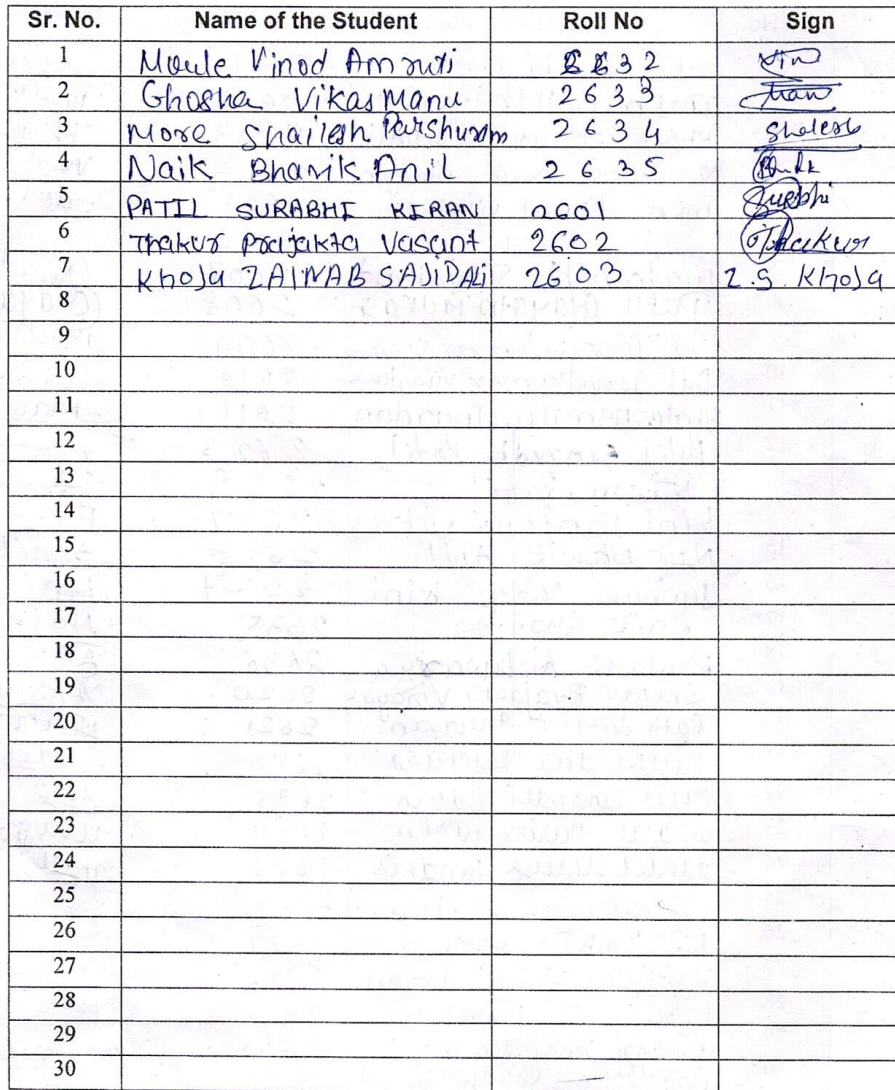 Sr. No. Name of the Student Roll No Sign
1 Moule Vinod Amruti 2632
2 Ghosha Vikas Manu 2633
3 More Shailesh Parshuram 2634 Shailesh
4 Naik Bhavik Anil 2635
5 PATIL SURABHI KIRAN 2601 Surbhi
6 Thakur Prajakta Vasant 2602 Thakur
7 Khoja ZAINAB SAJIDALi 2603 Z.S. Khoja
8
9
10
11
12
13
14
15
16
17
18
19
20
21
22
23
24
25
26
27
28
29
30